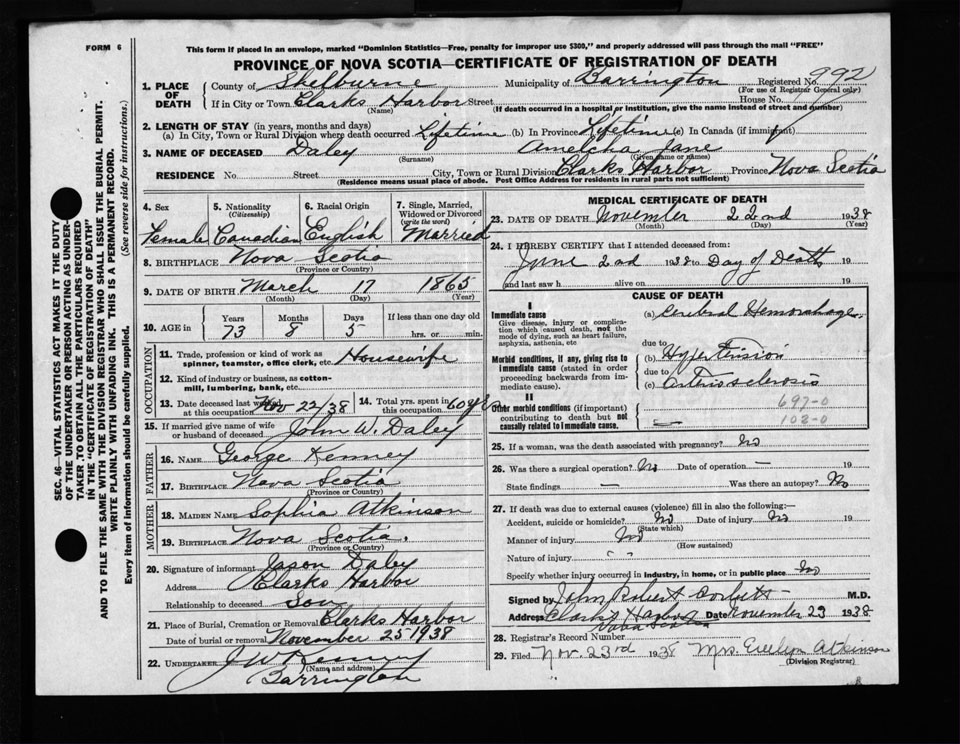 FORM 6
This form if placed in an envelope, marked "Dominion Statistics—Free, penalty for improper use $300," and properly addressed will pass through the mail "FREE"
PROVINCE OF NOVA SCOTIA—CERTIFICATE OF REGISTRATION OF DEATH
1. PLACE OF DEATH
County of Shelburne Municipality of Barrington Registered No. 992
(For use of Registrar General only)
If in City or Town Clarks Harbor Street House No.
(Name) (If death occurred in a hospital or institution, give the name instead of street and number)
2. LENGTH OF STAY (in years, months and days)
(a) In City, Town or Rural Division where death occurred Lifetime (b) In Province Lifetime (c) In Canada (if immigrant)
3. NAME OF DECEASED Daley Amelcha Jane
(Surname) (Given name or names)
RESIDENCE No. Street City, Town or Rural Division Clarks Harbor Province Nova Scotia
(Residence means usual place of abode. Post Office Address for residents in rural parts not sufficient)
4. Sex 5. Nationality (Citizenship) 6. Racial Origin 7. Single, Married, Widowed or Divorced (write the word)
Female Canadian English Married
8. BIRTHPLACE Nova Scotia
(Province or Country)
9. DATE OF BIRTH March 17 1865
(Month) (Day) (Year)
10. AGE in Years Months Days If less than one day old
73 8 5 hrs. or min.
OCCUPATION
11. Trade, profession or kind of work as spinner, teamster, office clerk, etc. Housewife
12. Kind of industry or business, as cotton-mill, lumbering, bank, etc.
13. Date deceased last worked at this occupation Nov 22/38 14. Total yrs. spent in this occupation 60 yrs
15. If married give name of wife or husband of deceased John W. Daley
FATHER
16. NAME George Kenney
17. BIRTHPLACE Nova Scotia
(Province or Country)
MOTHER
18. MAIDEN NAME Sophia Atkinson
19. BIRTHPLACE Nova Scotia.
(Province or Country)
20. Signature of informant Jason Daley
Address Clarks Harbor
Relationship to deceased Son
21. Place of Burial, Cremation or Removal Clarks Harbor
Date of burial or removal November 25 1938
22. UNDERTAKER J W Kenney
(Name and address)
Barrington
MEDICAL CERTIFICATE OF DEATH
23. DATE OF DEATH November 22nd 1938
(Month) (Day) (Year)
24. I HEREBY CERTIFY that I attended deceased from:
June 2nd 1938 to Day of Death 19
and last saw h alive on 19
CAUSE OF DEATH
I
Immediate cause
Give disease, injury or complication which caused death, not the mode of dying, such as heart failure, asphyxia, asthenia, etc
(a) Cerebral Hemorrhage
due to
Morbid conditions, if any, giving rise to immediate cause (stated in order proceeding backwards from immediate cause).
(b) Hypertension
due to
(c) arteriosclerosis
II
Other morbid conditions (if important) contributing to death but not causally related to immediate cause.
697-0
102-0
25. If a woman, was the death associated with pregnancy? No
26. Was there a surgical operation? No Date of operation — 19
State findings — Was there an autopsy? No
27. If death was due to external causes (violence) fill in also the following:—
Accident, suicide or homicide? No Date of injury No 19
(State which)
Manner of injury No
(How sustained)
Nature of injury " "
Specify whether injury occurred in industry, in home, or in public place No
Signed by John Robert M.D.
Address Clarks Harbor Date November 23 1938
Nova Scotia
28. Registrar's Record Number
29. Filed Nov. 23rd 1938 Mrs. Evelyn Atkinson
(Division Registrar)
SEC. 46—VITAL STATISTICS ACT MAKES IT THE DUTY OF THE UNDERTAKER OR PERSON ACTING AS UNDERTAKER TO OBTAIN ALL THE PARTICULARS REQUIRED IN THE "CERTIFICATE OF REGISTRATION OF DEATH" AND TO FILE THE SAME WITH THE DIVISION REGISTRAR WHO SHALL ISSUE THE BURIAL PERMIT.
WRITE PLAINLY WITH UNFADING INK. THIS IS A PERMANENT RECORD.
Every item of information should be carefully supplied. (See reverse side for instructions.)